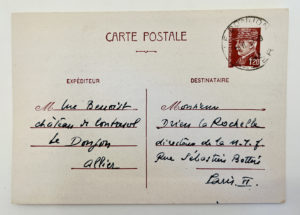 CARTE POSTALE
1F20
EXPÉDITEUR
DESTINATAIRE
M Luc Benoist
château de Contresol
Le Donjon
Allier
Monsieur
Drieu la Rochelle
directeur de la n.r.f.
Rue Sébastien Bottin
Paris VII